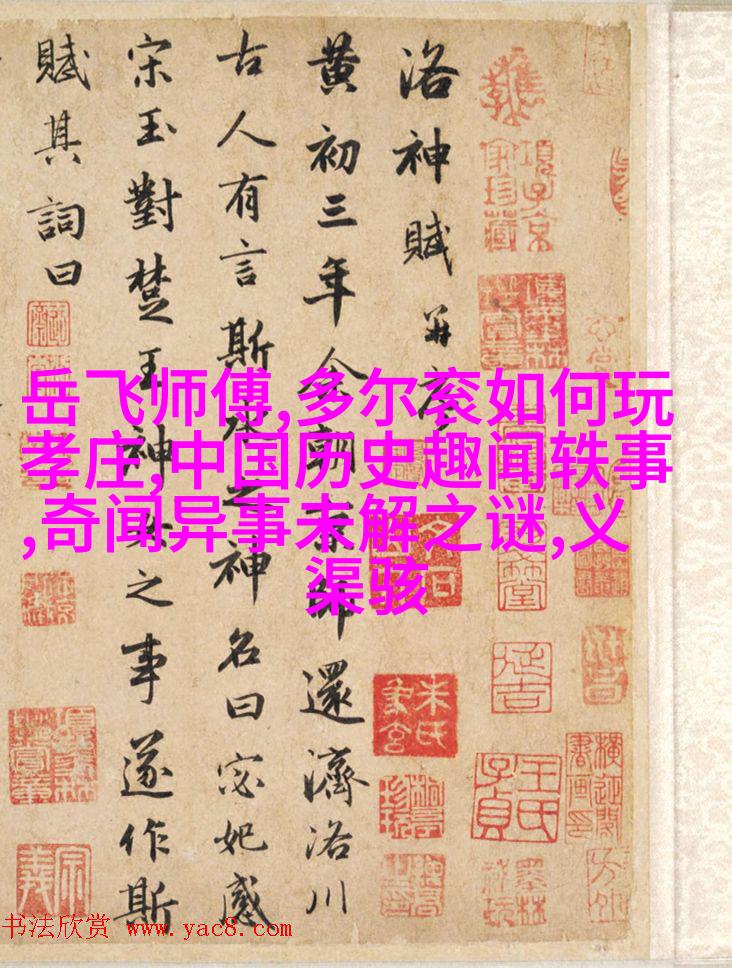 洛神賦并序
黄初三年余朝京師還濟洛川
古人有言斯水之神名曰宓妃感
宋玉對楚王神女之事遂作斯
賦其詞曰
岳飞师傅,多尔衮如何玩
孝庄,中国历史趣闻轶事
,奇闻异事未解之谜,义
渠骇
項子京
家珍藏
书法欣赏 www.yac8.com